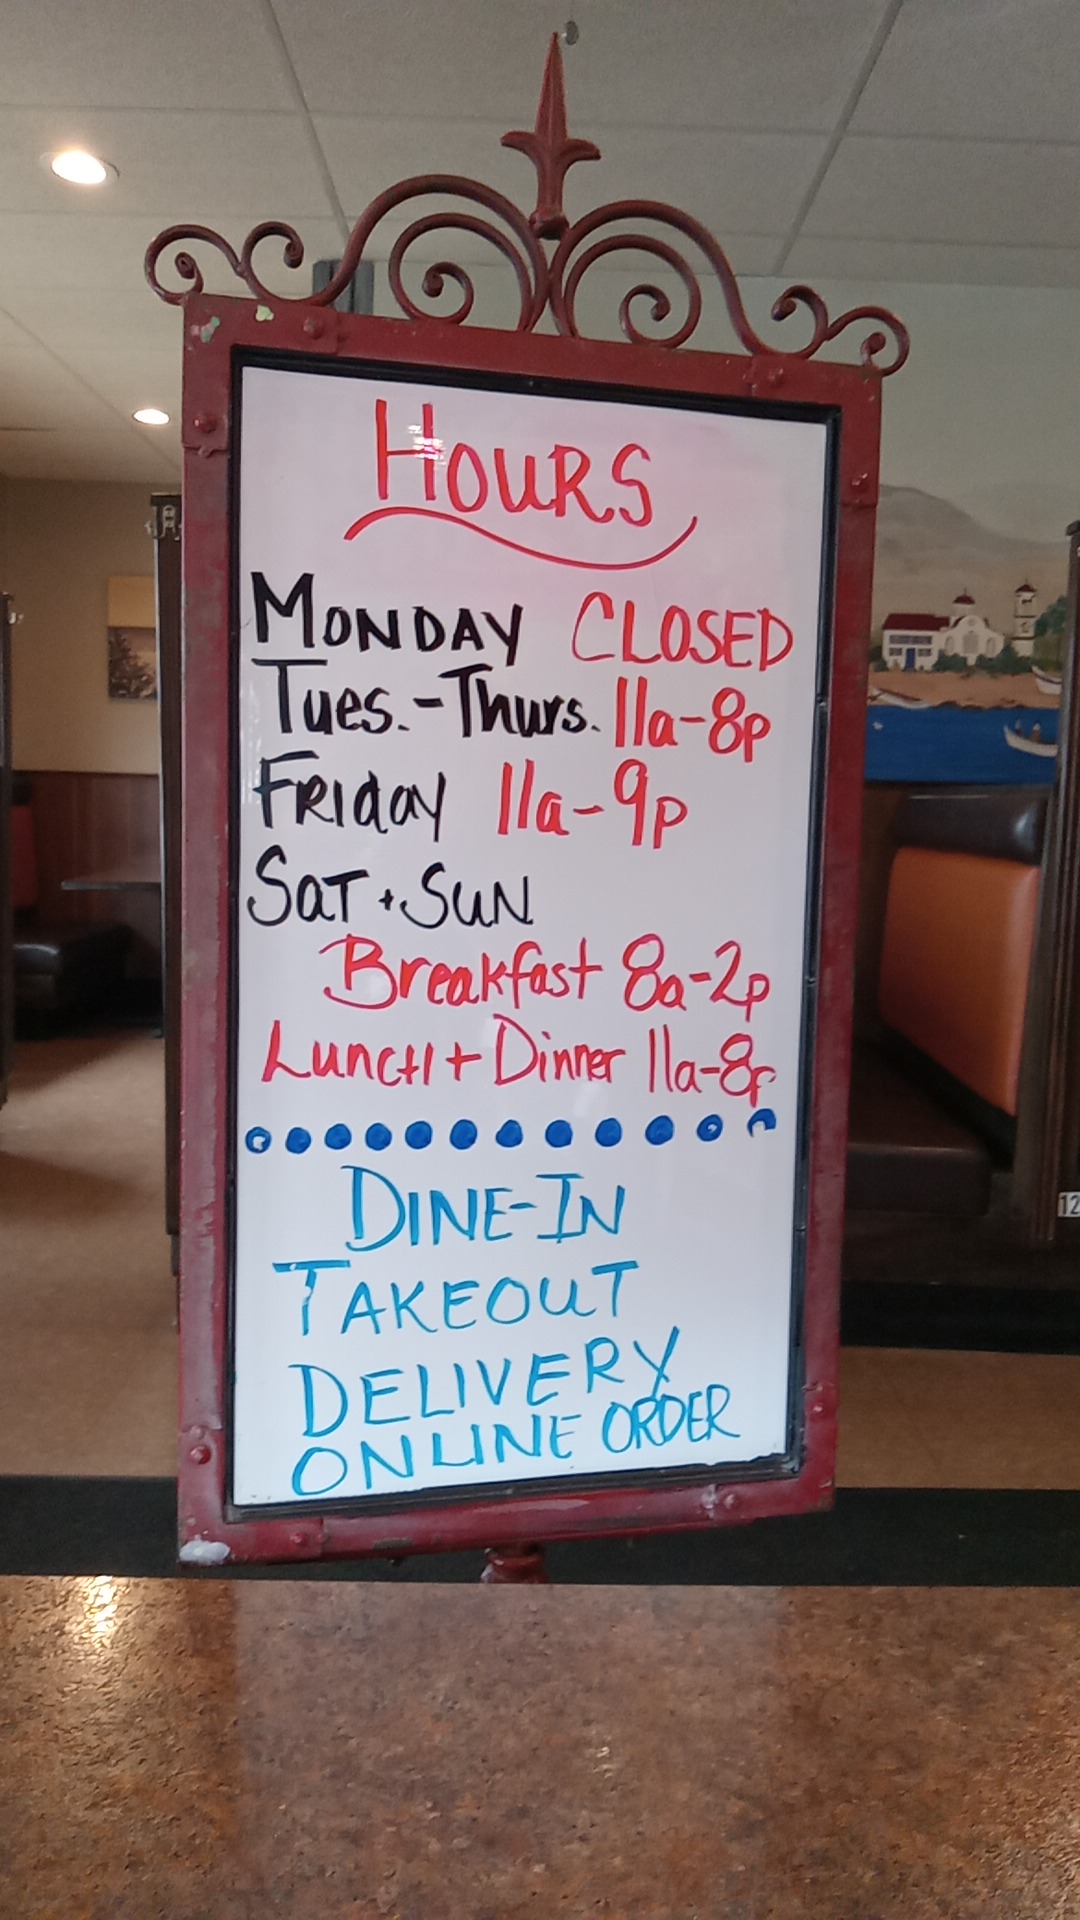 HOURS
MONDAY CLOSED
Tues.-Thurs. 11a-8p
FRIDAY 11a-9p
SAT + SUN
Breakfast 8a-2p
Lunch + Dinner 11a-8p
DINE-IN
TAKEOUT
DELIVERY
ONLINE ORDER
12